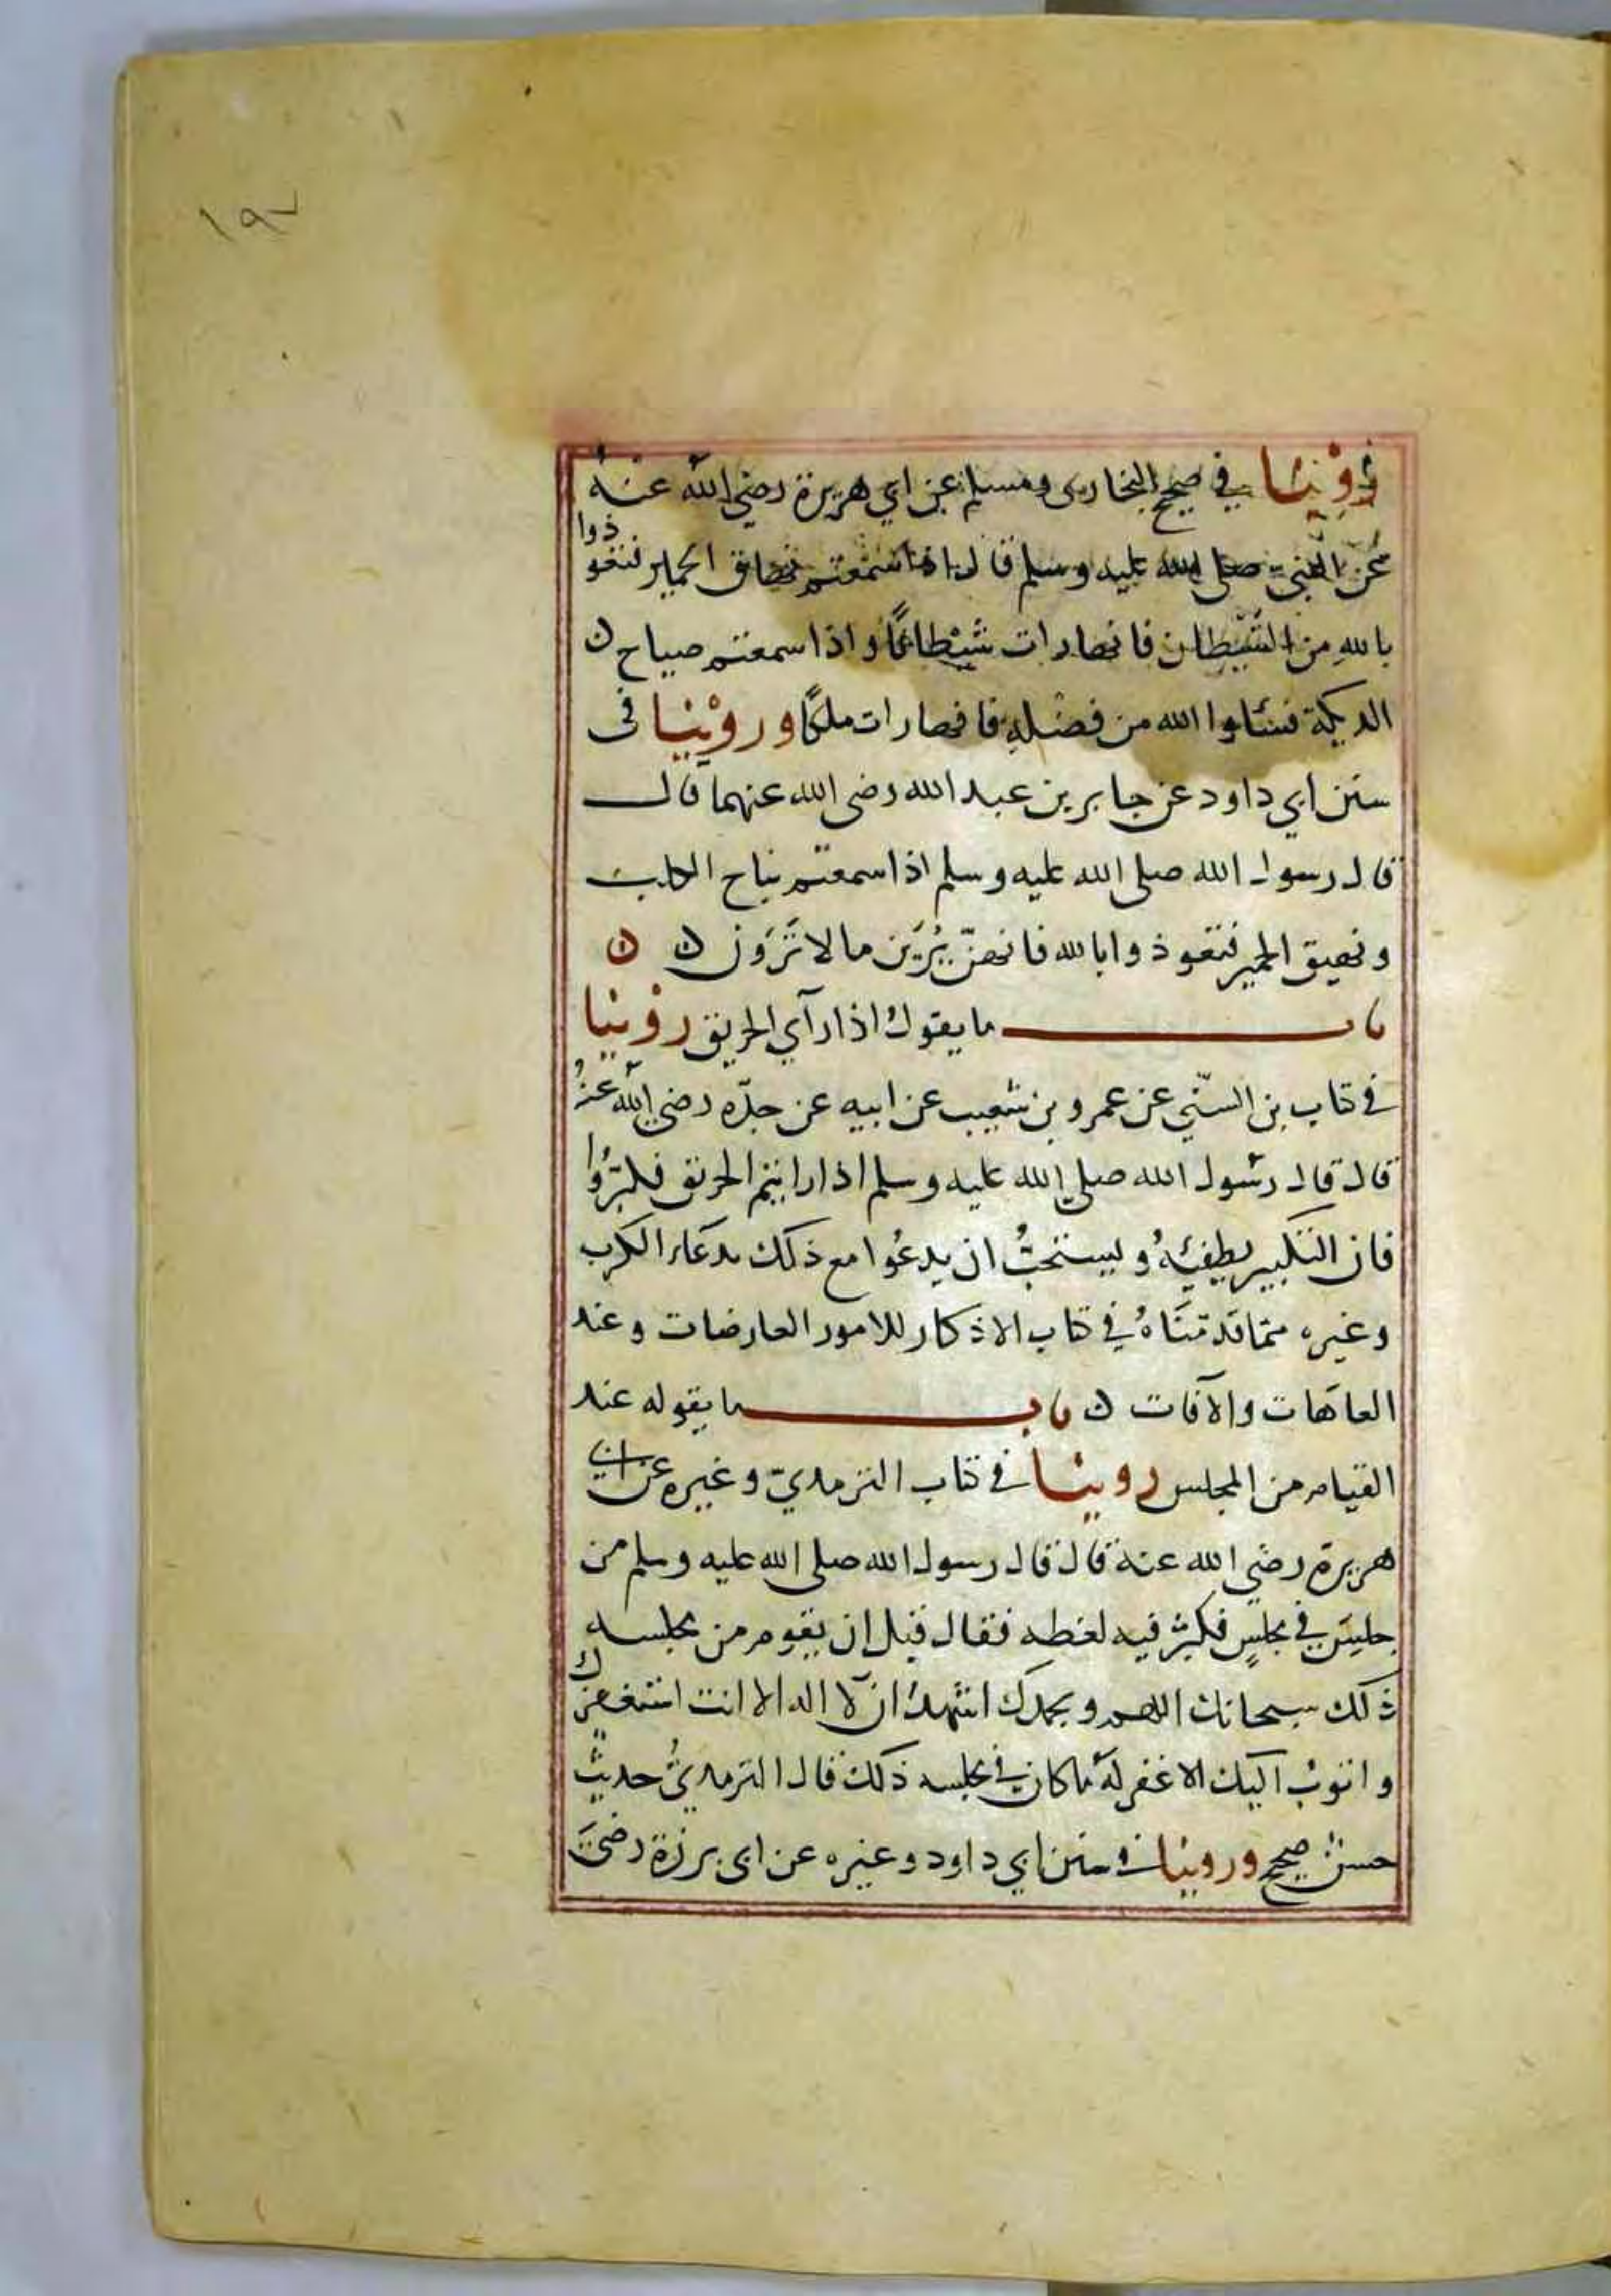 ١٩٧
رُوِّيْنَا في صحيح البخارى ومسلم عن ابي هريرة رضي الله عنه
عن النبي صلى الله عليه وسلم قال اذا سمعتم نهاق الحمير فتعوذوا
بالله من الشيطان فانها رات شيطانًا واذا سمعتم صياح ن
الديكة فسئلوا الله من فضله فانها رات ملكًا وروينا فى
سنن ابي داود عن جابر بن عبد الله رضى الله عنهما قال
قال رسول الله صلى الله عليه وسلم اذا سمعتم نباح الكلب
ونهيق الحمير فتعوذوا بالله فانهنّ يُرَين مالا تَرَوْن ن ن
باب ما يقول اذا رآي الحريق روينا
في كتاب بن السنّي عن عمرو بن شعيب عن ابيه عن جدّه رضي الله عنهُ
قال قال رسول الله صلى الله عليه وسلم اذا رايتم الحريق فكبّرُوا
فان التكبير يطفيهُ ويستحبُّ ان يدعُوا مع ذلك بدعاء الكرب
وغيره ممّا قدمّناهُ في كتاب الاذكار للامور العارضات وعند
العاهات والآفات ن باب ما يقوله عند
القيام من المجلس روينا في كتاب الترمذيّ وغيره عن ابي
هريرة رضي الله عنه قال قال رسول الله صلى الله عليه وسلم من
جلسَ في مجلسٍ فكثرُ فيه لغطه فقال قبل ان يقوم من مجلسه
ذلك سبحانك اللهم وبحمدك اشهدُ ان لآ اله الا انت استغفرك
واتوبُ اليك الا غفر لهُ ما كان في مجلسه ذلك قال الترمذيُّ حديثٌ
حسنٌ صحيح وروينا في سنن ابي داود وغيره عن ابى برزة رضيَ